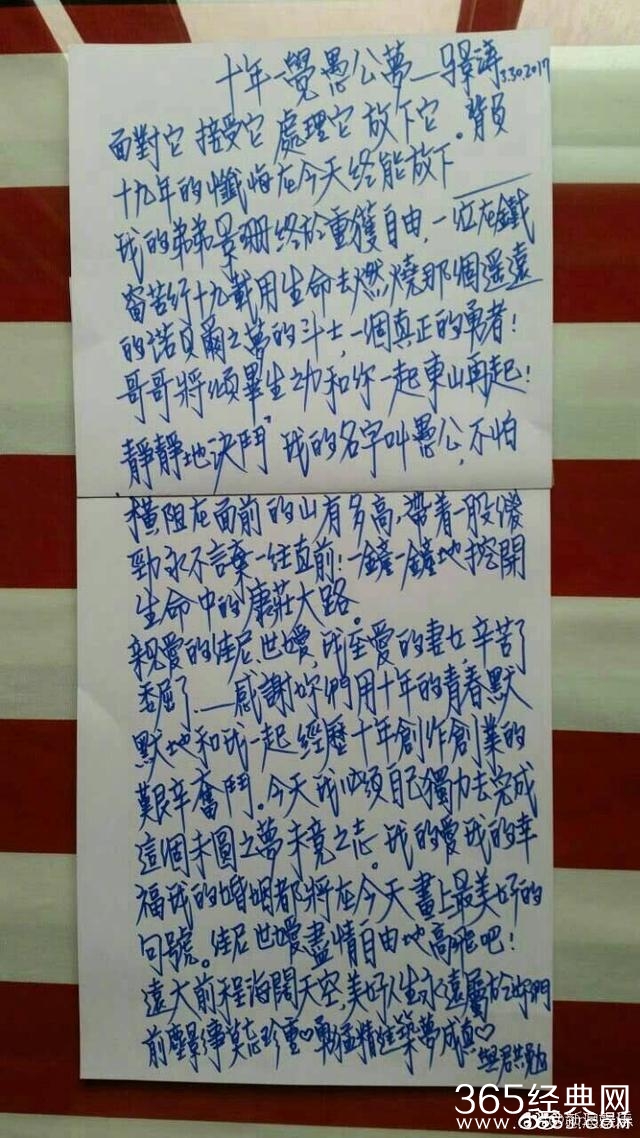 十年一覺愚公夢—馬景濤 3.30.2017
面對它 接受它 處理它 放下它。背負
十九年的懺悔在今天終能放下——
我的弟弟景珊終於重獲自由，一位在鐵
窗苦行十九載用生命去燃燒那個遙遠
的諾貝爾之夢的斗士，一個真正的勇者！
哥哥將傾畢生之功和你一起東山再起！
靜靜地決鬥，我的名字叫愚公，不怕
橫阻在面前的山有多高，帶着一股傻
勁永不言棄一往直前！一鏟一鏟地挖開
生命中的康莊大路。
親愛的佳尼、世嬡，我至愛的妻女，辛苦了
委屈了——感謝妳們用十年的青春默
默地和我一起 經歷十年創作創業的
艱辛奮鬥。今天我必須自己獨力去完成
這個未圓之夢未竟之志。我的愛我的幸
福我的婚姻都將在今天畫上最美好的
句號。佳尼 世嬡盡情自由地高飛吧！
遠大前程海闊天空，美好人生永遠屬於妳們
前塵舊事莫忘珍重♡勇猛精進築夢成真♡ 與君共勉
365经典网
365